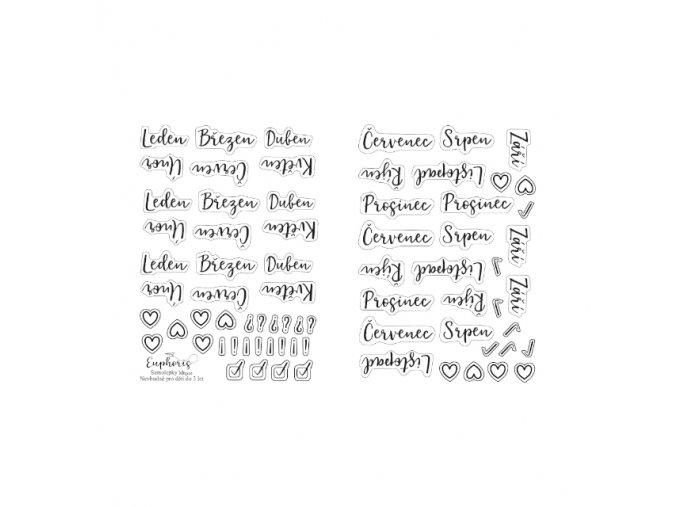 Leden Březen Duben
Únor Červen Květen
Leden Březen Duben
Únor Červen Květen
Leden Březen Duben
Únor Červen Květen
¿? ¿? ¿? ¿?
! ! ! ! ! ! ! !
Euphoris
Samolepky Měsíce
Nevhodné pro děti do 3 let
Červenec Srpen Září
Říjen Listopad
Prosinec Prosinec
Červenec Srpen Září
Říjen Listopad
Prosinec Říjen Září
Červenec Srpen
Listopad